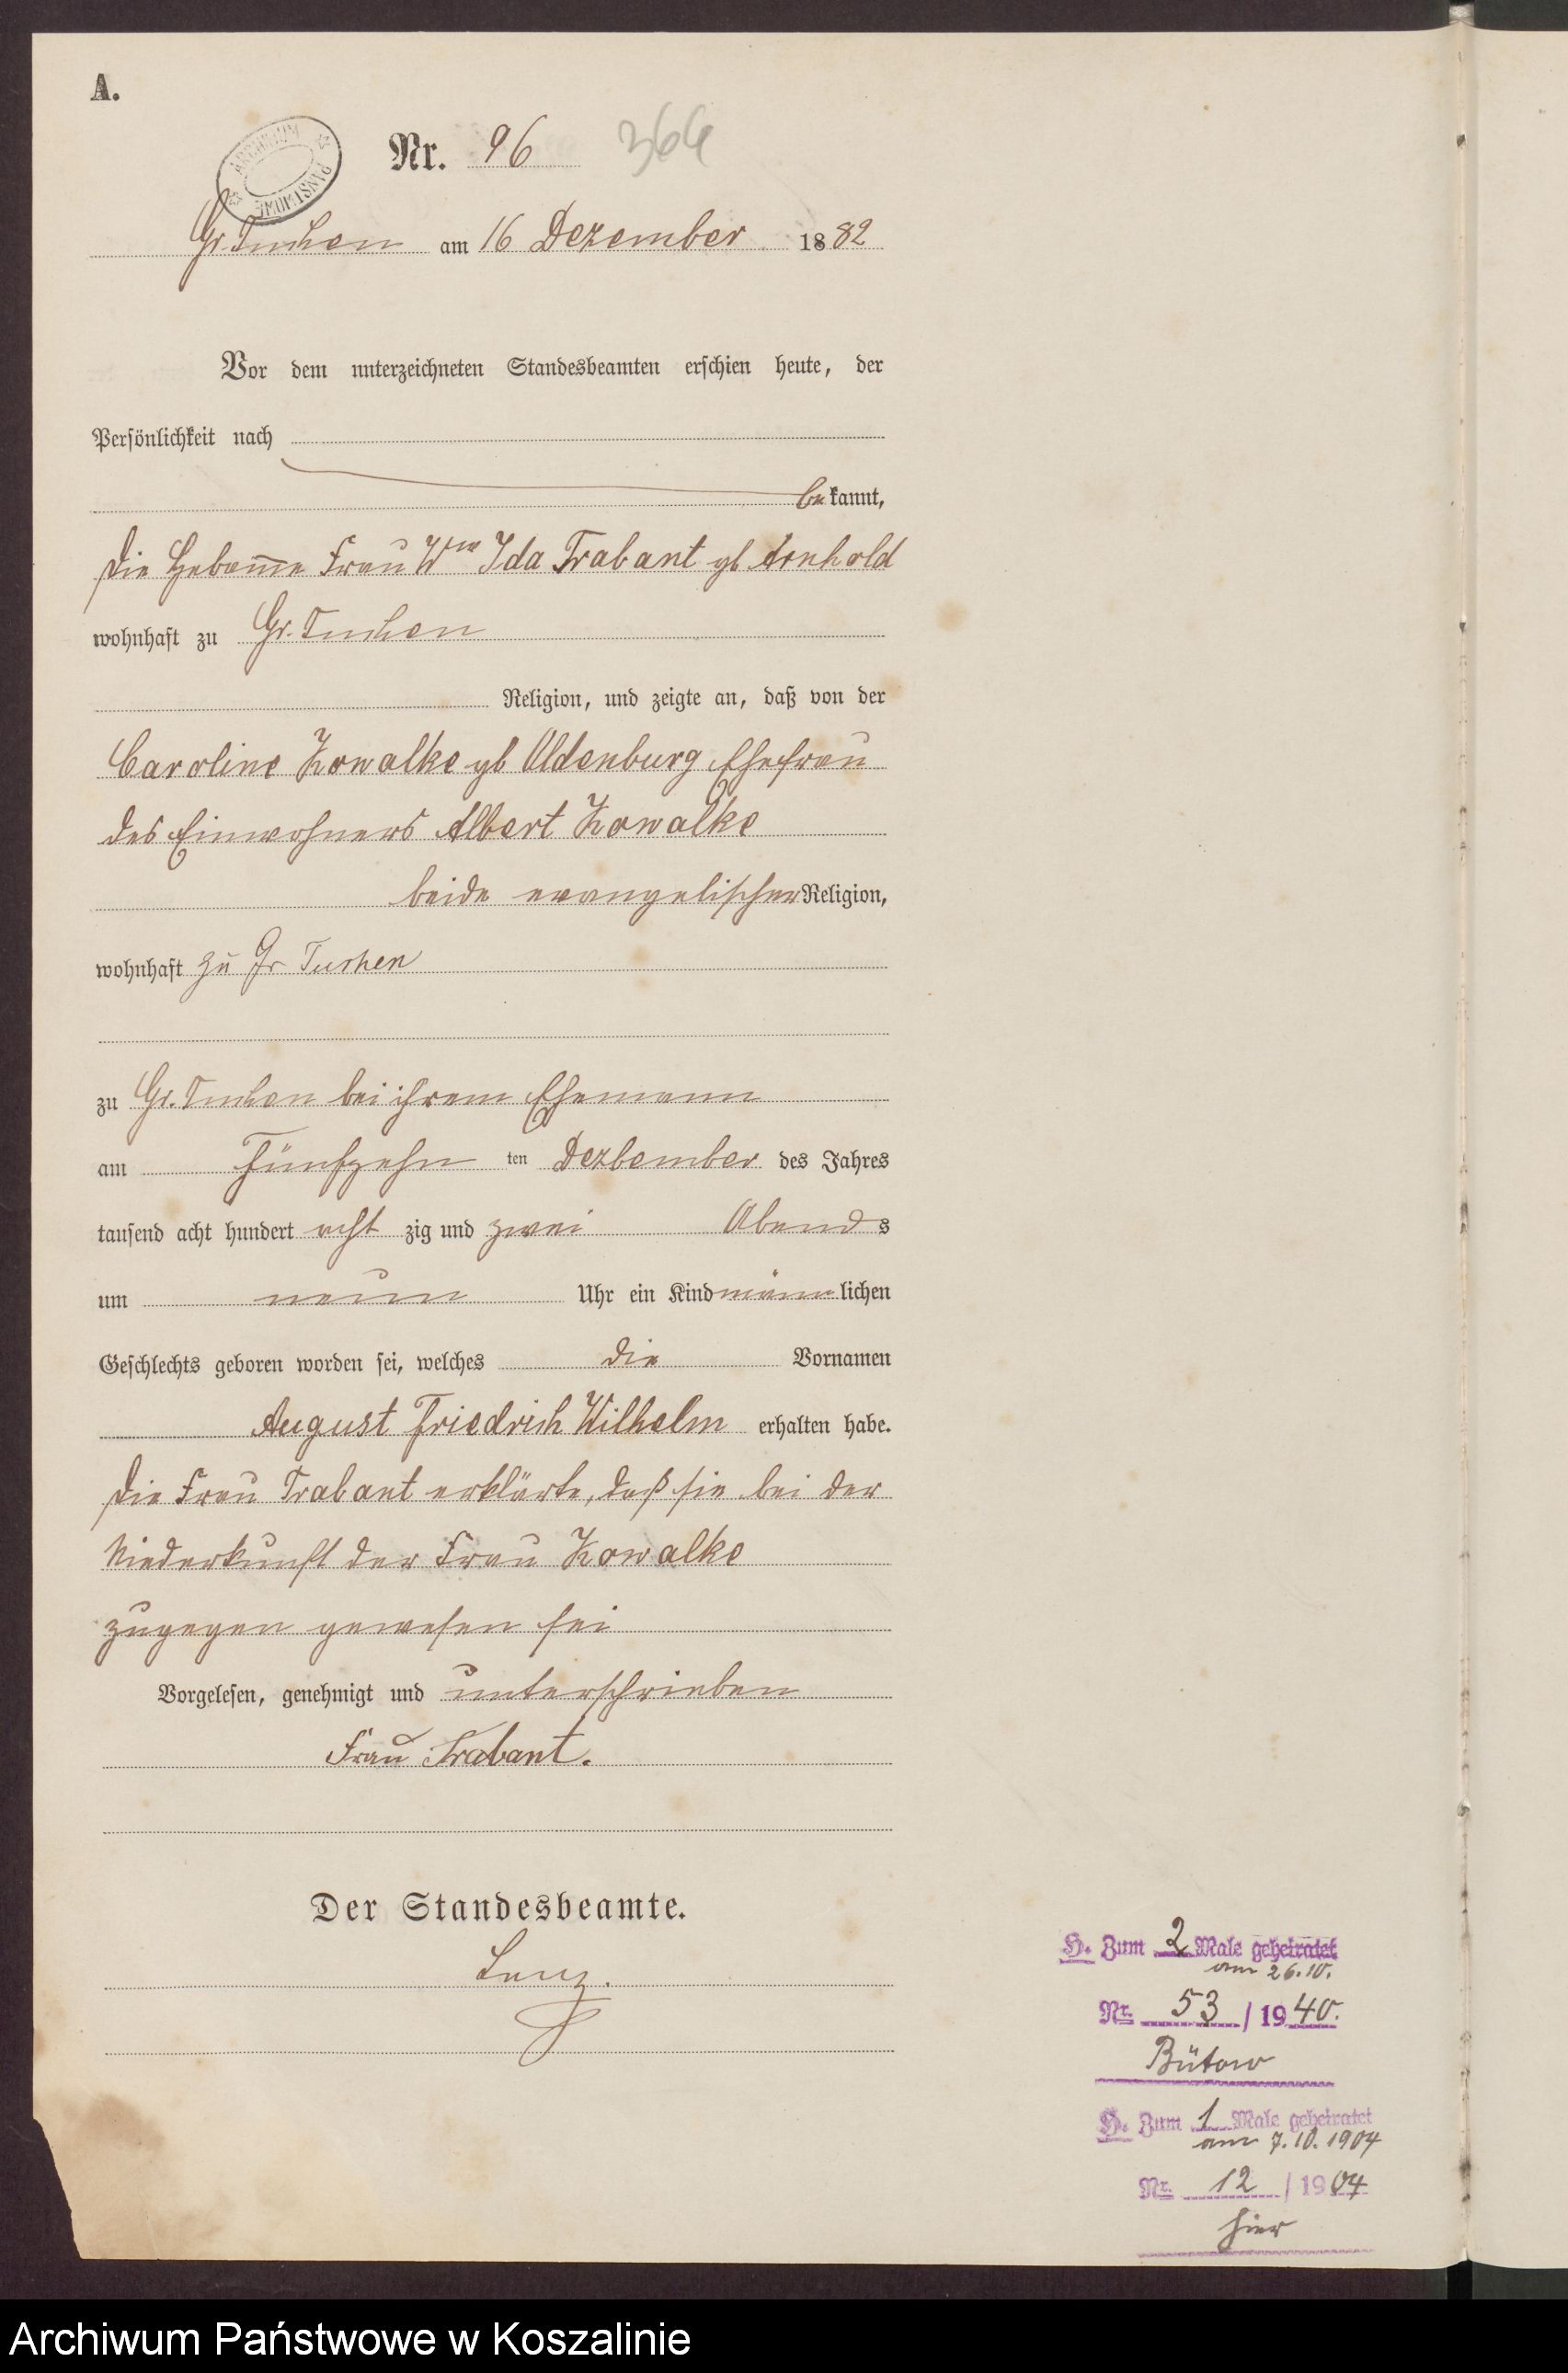 A.
ARCHIWUM PAŃSTWOWE
Nr. 96 366
Gr. Tuchen am 16 Dezember 1882
Vor dem unterzeichneten Standesbeamten erschien heute, der
Persönlichkeit nach
bekannt,
die Hebam̅e Frau Wwe Ida Trabant gb Arnhold
wohnhaft zu Gr. Tuchen
Religion, und zeigte an, daß von der
Caroline Kowalke gb Oldenburg Ehefrau
des Einwohners Albert Kowalke
beide evangelischer Religion,
wohnhaft zu Gr Tuchen
zu Gr. Tuchen bei ihrem Ehemann
am fünfzehn ten Dezbember des Jahres
tausend acht hundert acht zig und zwei Abends
um neun Uhr ein Kind männlichen
Geschlechts geboren worden sei, welches die Vornamen
August Friedrich Wilhelm erhalten habe.
Die Frau Trabant erklärte, daß sie bei der
Niederkunft der Frau Kowalke
zugegen gewesen sei
Vorgelesen, genehmigt und unterschrieben
Frau Trabant.
Der Standesbeamte.
Lenz.
H. Zum 2 Male geheiratet
am 26.10.
Nr. 53 / 1940.
Bütow
H. Zum 1 Male geheiratet
am 7.10.1904
Nr. 12 / 1904
hier
Archiwum Państwowe w Koszalinie